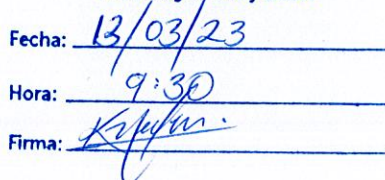 Fecha: 13/03/23
Hora: 9:30
Firma: